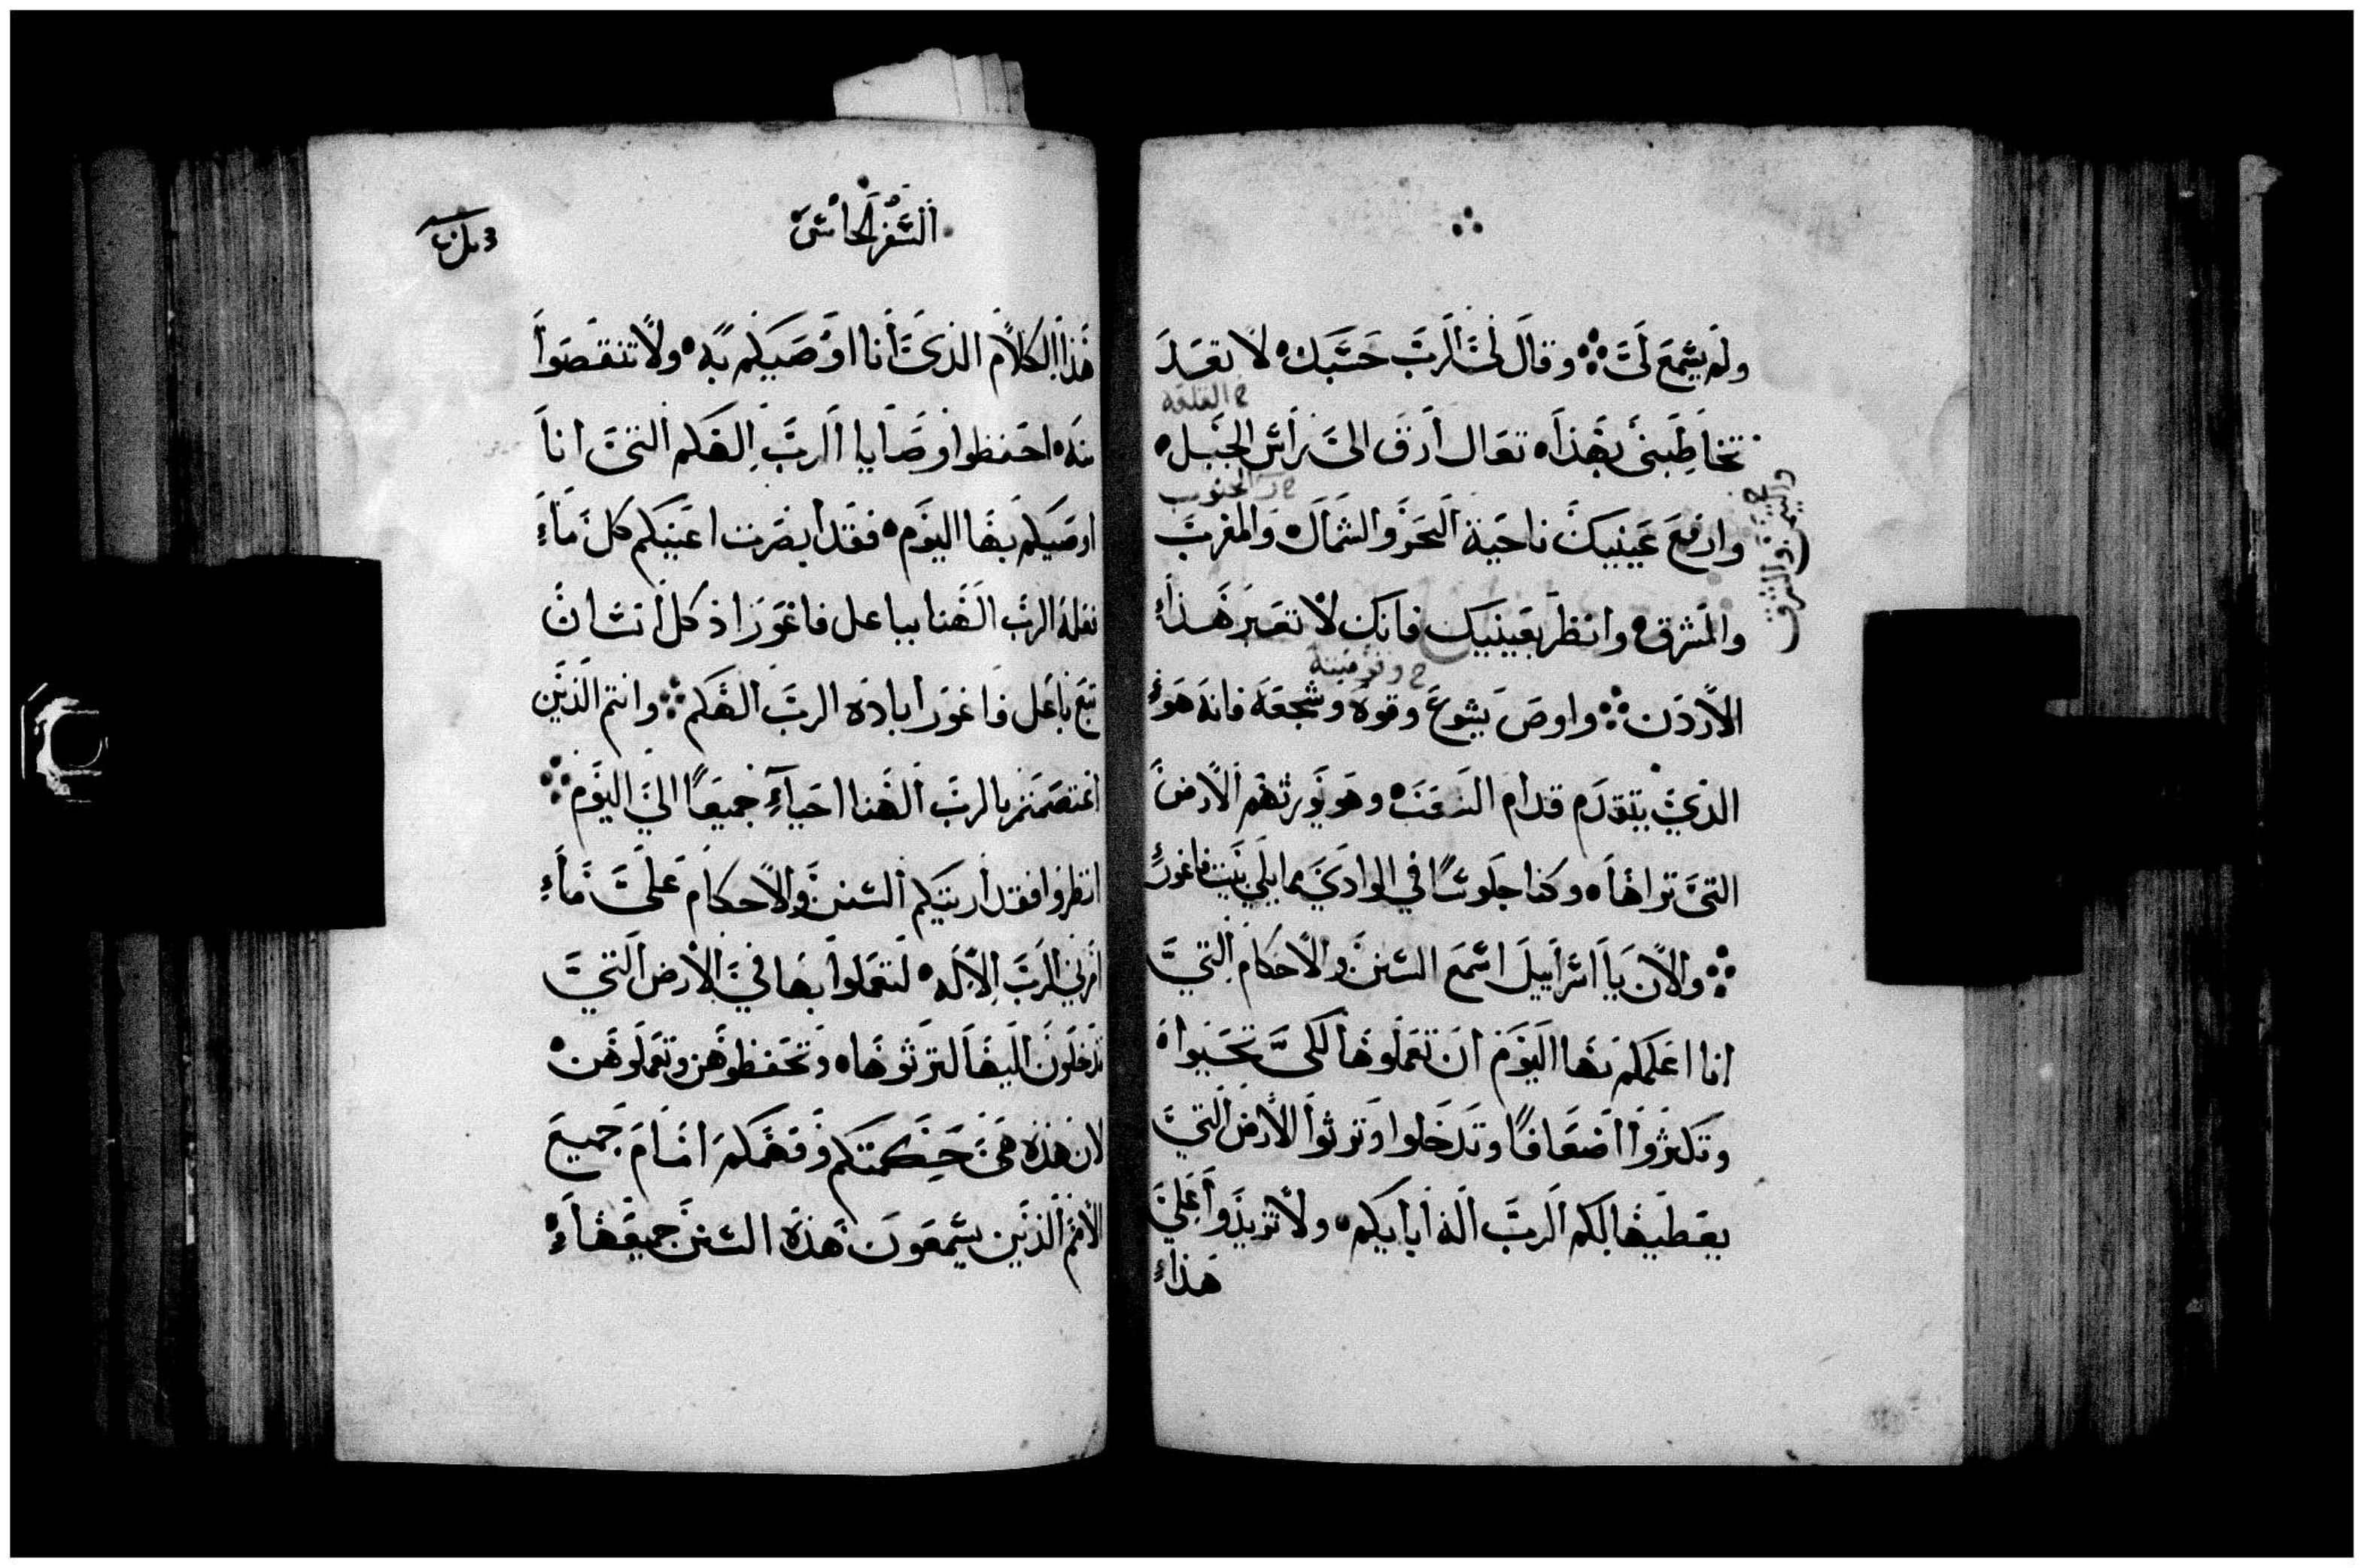 ولم يسمع لي وقال لي الرب حسبك لا تعد
ح القلعه
تخاطبني بهذا تعال ارق الى راس الجبل
الجنوب
وارفع عينيك ناحية البحر والشمال والمغرب
والمشرق وانظر بعينيك فانك لا تعبر هذا
واليمن والشرق
ح وقومينه
الاردن واوص يشوع وقوه وشجعه فانه هو
الذي يتقدم قدام الشعب وهو يورثهم الارض
التي تراها وكنا جلوسا في الوادي مما يلي بيت فاغور
والان يا اسراييل اسمع السنن والاحكام التي
انا اعلمكم بها اليوم ان تعملوها لكي تحيوا
وتكثروا اضعافا وتدخلوا وترثوا الارض التي
يعطيها لكم الرب اله ابايكم ولا تزيدوا علي
هذا
السفر الخامس
هذا الكلام الذي انا اوصيكم به ولا تنقصوا
منه احفظوا وصايا الرب الهكم التي انا
اوصيكم بها اليوم فقد ابصرت اعينكم كل ما
فعله الرب الهنا بباعل فاغور اذ كل انسان
تبع باعل فاغور اباده الرب الهكم وانتم الذين
اعتصمتم بالرب الهنا احياء جميعا الي اليوم
انظروا فقد اريتكم السنن والاحكام علي ما
امرني الرب الاله لتعملوا بها في الارض التي
تدخلون اليها لترثوها وتحفظوهن وتعملوهن
لان هذه هي حكمتكم وفهمكم امام جميع
الامم الذين يسمعون هذه السنن جميعها